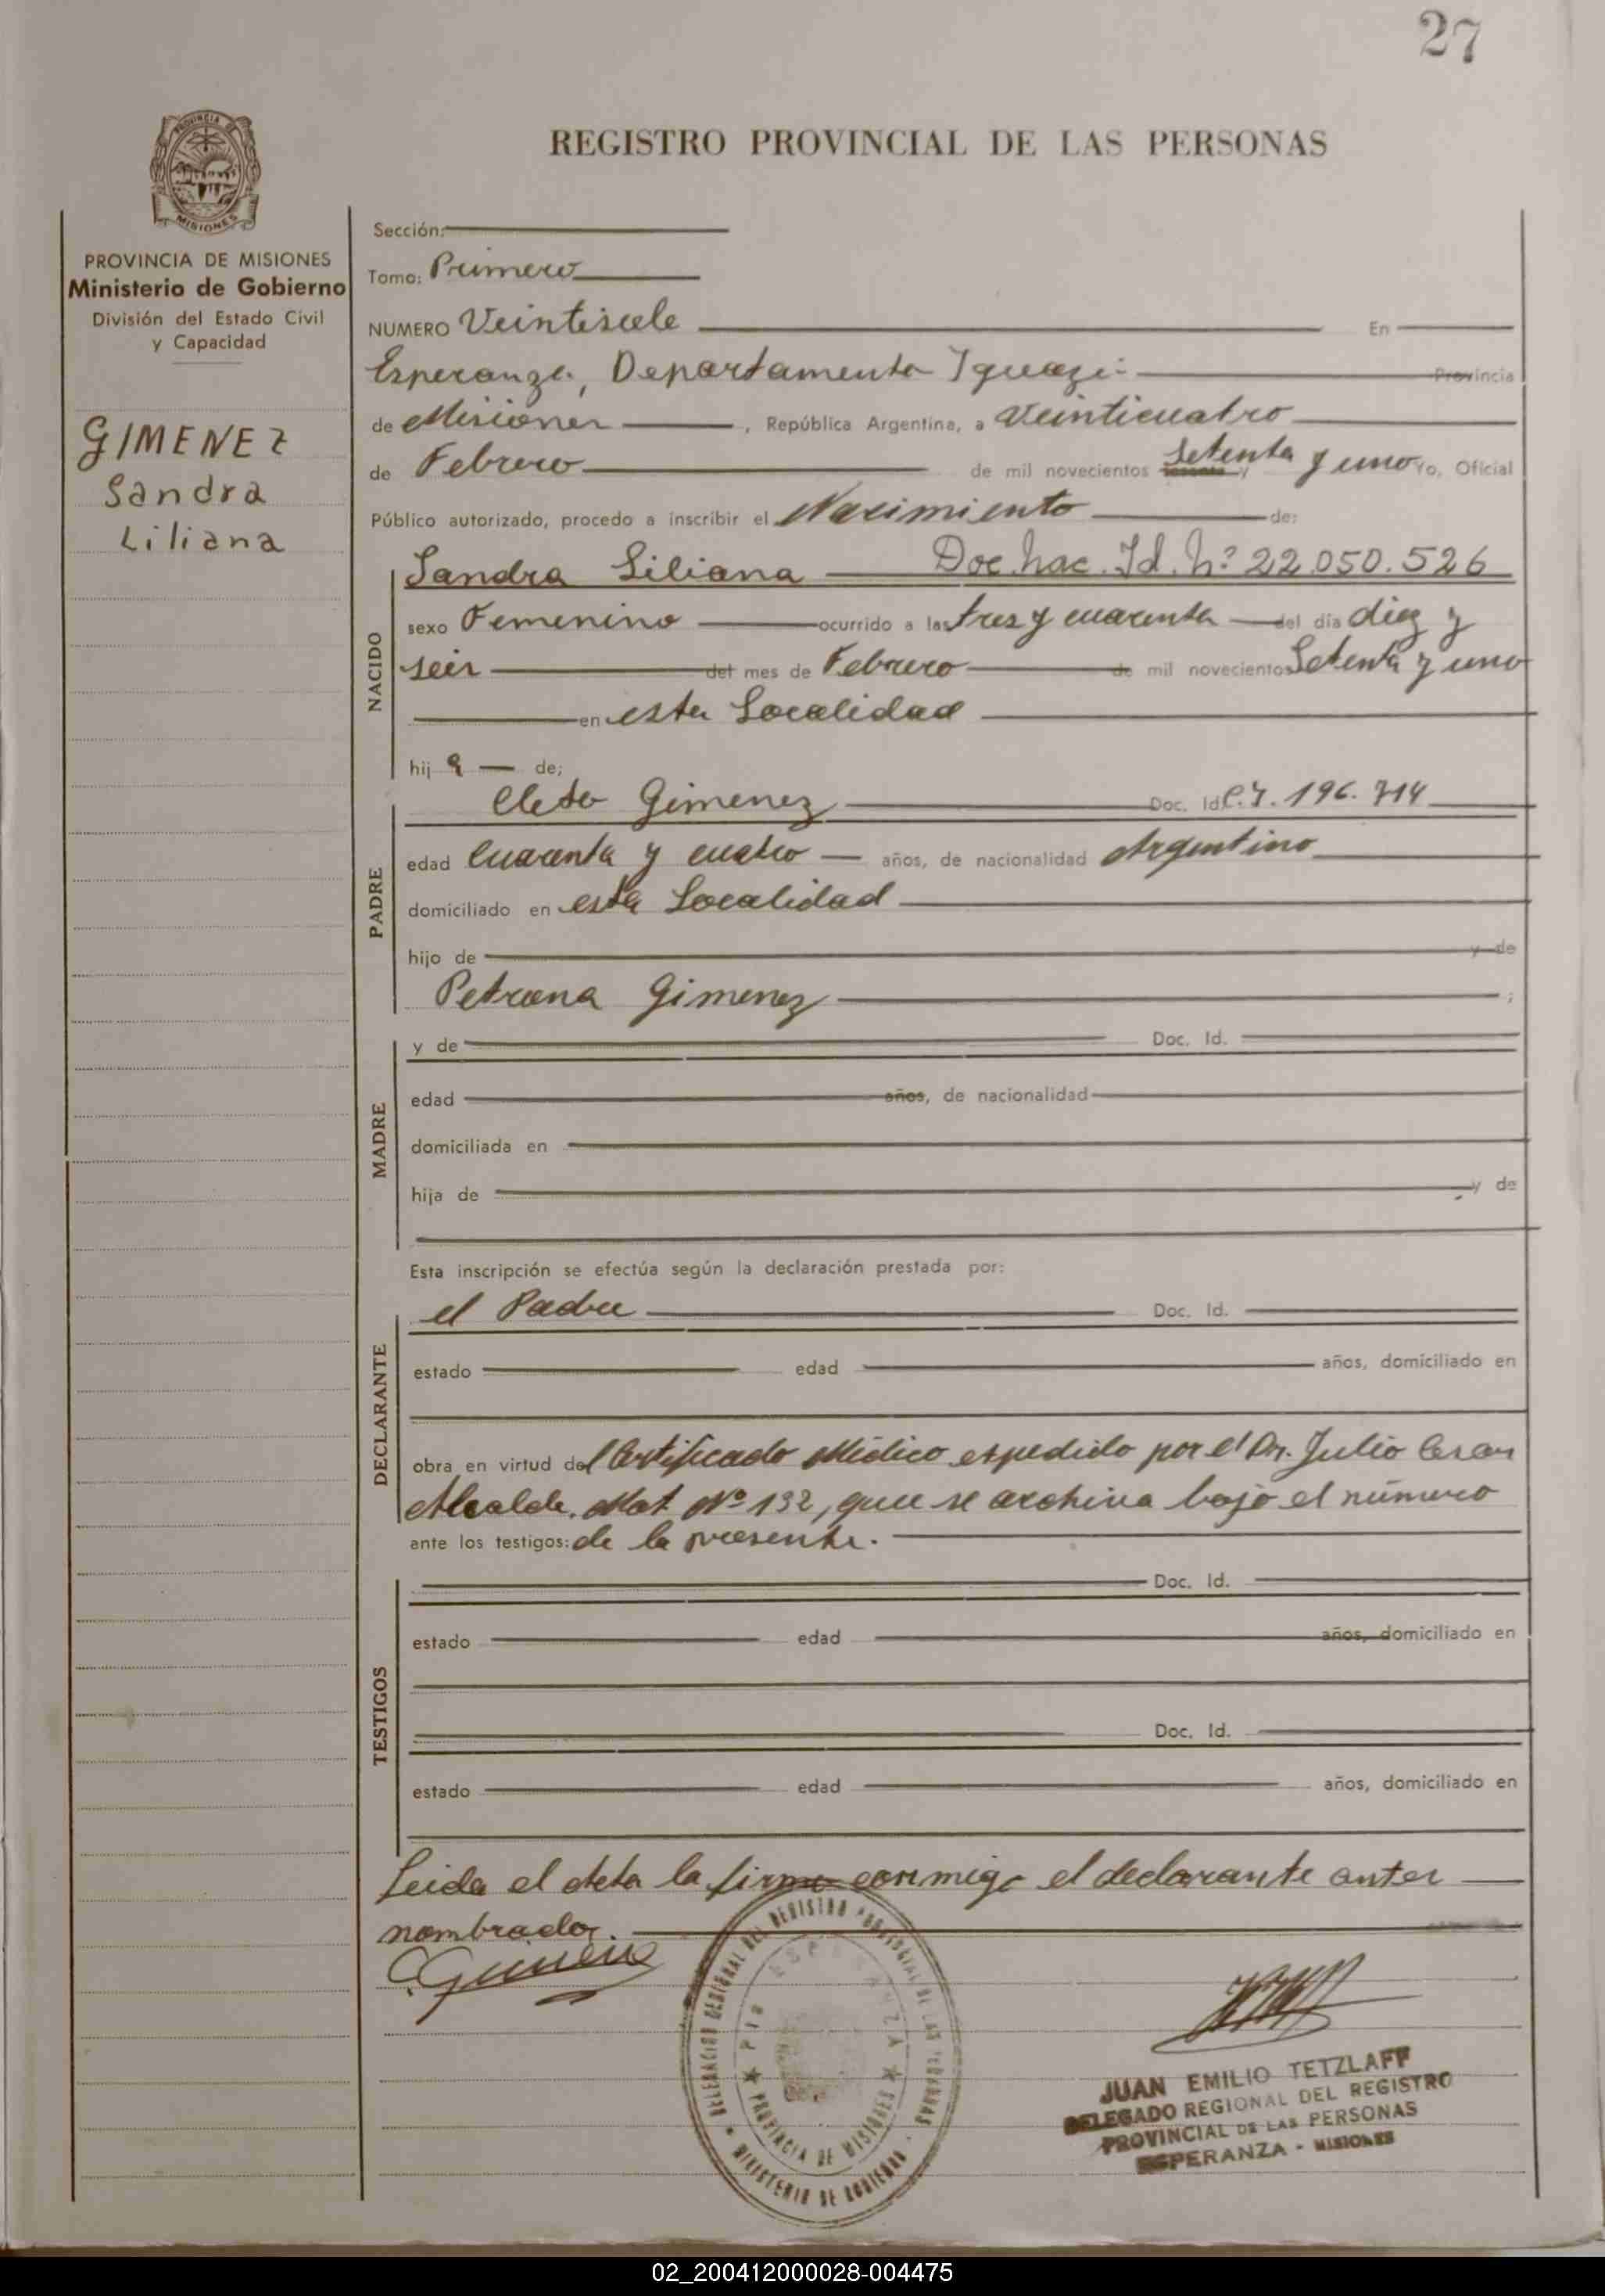 27
PROVINCIA DE
MISIONES
REGISTRO PROVINCIAL DE LAS PERSONAS
PROVINCIA DE MISIONES
Ministerio de Gobierno
División del Estado Civil
y Capacidad
GIMENEZ
Sandra
Liliana
Sección:
Tomo: Primero
NUMERO Veintisiete En
Esperanza, Departamento Iguazú Provincia
de Misiones, República Argentina, a Veinticuatro
de Febrero de mil novecientos sesenta y Setenta y uno Yo, Oficial
Público autorizado, procedo a inscribir el Nacimiento de:
NACIDO
Sandra Liliana Doc. nac. Id. Nº 22.050.526
sexo Femenino ocurrido a las tres y cuarenta del día diez y
seis del mes de Febrero de mil novecientos Setenta y uno
en esta Localidad
hij a de;
PADRE
Cleto Gimenez Doc. Id. C.I. 196.714
edad Cuarenta y cuatro años, de nacionalidad Argentino
domiciliado en esta Localidad
hijo de y de
Petrona Gimenez ;
MADRE
y de Doc. Id.
edad años, de nacionalidad
domiciliada en
hija de y de
Esta inscripción se efectúa según la declaración prestada por:
DECLARANTE
el Padre Doc. Id.
estado edad años, domiciliado en
obra en virtud del Certificado Médico expedido por el Dr. Julio Cesar
Alcalde. Mat. Nº 132, que se archiva bajo el número
ante los testigos: de la presente.
TESTIGOS
Doc. Id.
estado edad años, domiciliado en
Doc. Id.
estado edad años, domiciliado en
Leida el Acta la firma conmigo el declarante antes
nombrado.
CGimenez
DELEGACION REGIONAL DEL REGISTRO PROVINCIAL DE LAS PERSONAS
PROVINCIA DE MISIONES
MINISTERIO DE GOBIERNO
JUAN EMILIO TETZLAFF
DELEGADO REGIONAL DEL REGISTRO
PROVINCIAL DE LAS PERSONAS
ESPERANZA - MISIONES
02_200412000028-004475